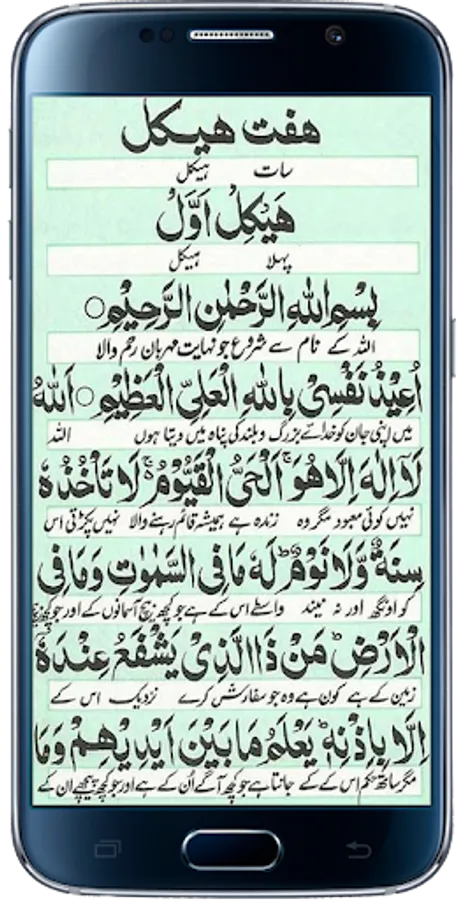 هفت هيكل
سات ہیکل
هَيْكِلْ اَوَّلْ
پہلا ہیکل
بِسْمِ اللهِ الرَّحْمٰنِ الرَّحِيْمِ ○
اللہ کے نام سے شروع جو نہایت مہربان رحم والا
اُعِيْذُ نَفْسِىْ بِاللهِ الْعَلِىِّ الْعَظِيْمِ ○ اَللهُ
میں اپنی جان کو خدائے بزرگ و بلند کی پناہ میں دیتا ہوں اللہ
لَآ اِلٰهَ اِلَّا هُوَ ۚ اَلْحَىُّ الْقَيُّوْمُ ۚ لَا تَأْخُذُهٗ
نہیں کوئی معبود مگر وہ زندہ ہے ہمیشہ قائم رہنے والا نہیں پکڑتی اس
سِنَةٌ وَّلَا نَوْمٌ ؕ لَهٗ مَا فِى السَّمٰوٰتِ وَمَا فِى
کو اونگھ اور نہ نیند واسطے اس کے ہے جو کچھ بیچ آسمانوں کے اور جو کچھ بیچ
الْاَرْضِ ؕ مَنْ ذَا الَّذِىْ يَشْفَعُ عِنْدَهٗٓ
زمین کے ہے کون ہے وہ جو سفارش کرے نزدیک اس کے
اِلَّا بِاِذْنِهٖ ؕ يَعْلَمُ مَا بَيْنَ اَيْدِيْهِمْ وَمَا
مگر ساتھ حکم اس کے کے جانتا ہے جو کچھ آگے اُن کے ہے اور جو کچھ پیچھے ان کے